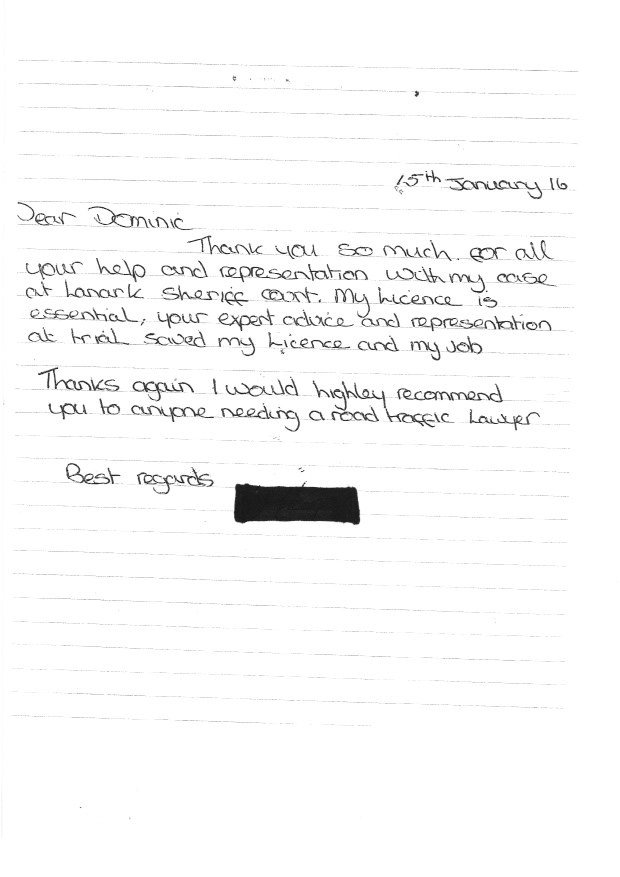 15th January 16
Dear Dominic
Thank you so much for all
your help and representation with my case
at Lanark Sheriff court. My Licence is
essential, your expert advice and representation
at trial saved my Licence and my job
Thanks again I would highley recommend
you to anyone needing a road traffic Lawyer
Best regards